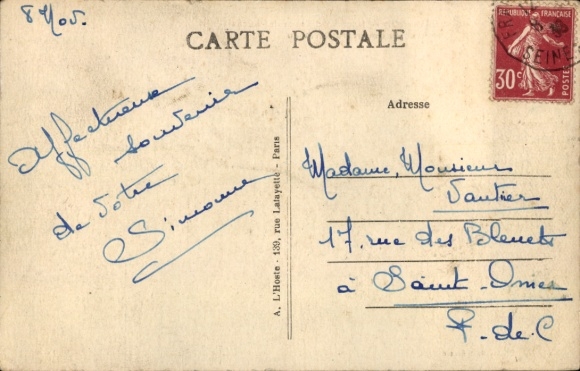 8 Nov.
CARTE POSTALE
RÉPUBLIQUE FRANÇAISE
30c
POSTES
SEINE
Affectueux
souvenir
de votre
Simone
A. L'Hoste - 139, rue Lafayette - Paris
Adresse
Madame, Monsieur
Vautier
17, rue des Bleuets
à Saint-Omer
P-de-C